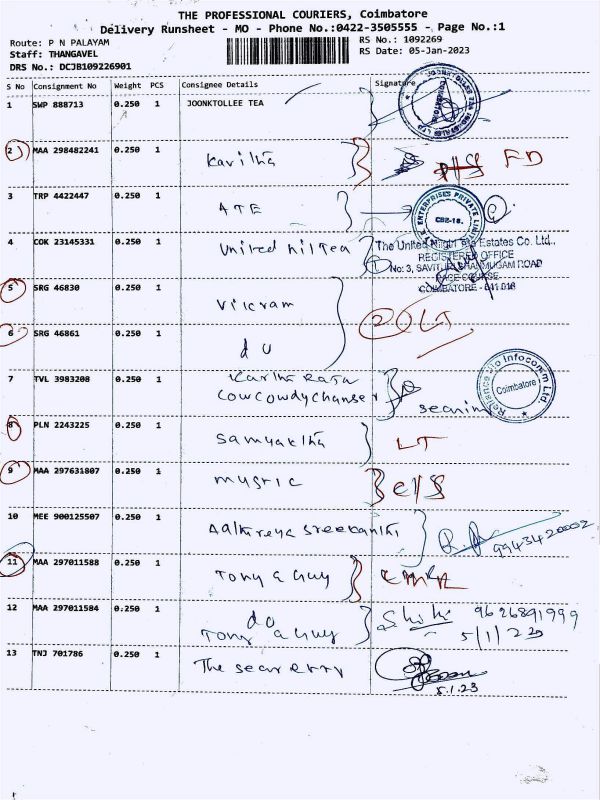 THE PROFESSIONAL COURIERS, Coimbatore
Delivery Runsheet - MO - Phone No.:0422-3505555 - Page No.:1
Route: P N PALAYAM
RS No.: 1092269
Staff: THANGAVEL
RS Date: 05-Jan-2023
DRS No.: DCJB109226901
S No Consignment No Weight PCS Consignee Details Signature
1 SWP 888713 0.250 1 JOONKTOLLEE TEA
2 MAA 298482241 0.250 1 Kavitha FD
3 TRP 4422447 0.250 1 ATE
ENTERPRISES PRIVATE LIMITED
CBE-18.
4 COK 23145331 0.250 1 United nil Tea The United Nilgiri Tea Estates Co. Ltd.,
REGISTERED OFFICE
No: 3, SAVITHRI SHANMUGAM ROAD
RACE COURSE
COIMBATORE - 641 018
5 SRG 46830 0.250 1 Vikram
2 LT
6 SRG 46861 0.250 1 do
7 TVL 3983208 0.250 1 Karthi Raja
Reliance Jio Infocomm Ltd.
Coimbatore
8 PLN 2243225 0.250 1 Samyaktha LT
9 MAA 297631807 0.250 1 mystic
10 MEE 900125507 0.250 1 Aathreya Sreekanth 9943420002
11 MAA 297011588 0.250 1 Tony a Guy
12 MAA 297011584 0.250 1 do 9626891999
Tony a Guy 5/1/23
13 TNJ 701786 0.250 1 The secretary
5.1.23